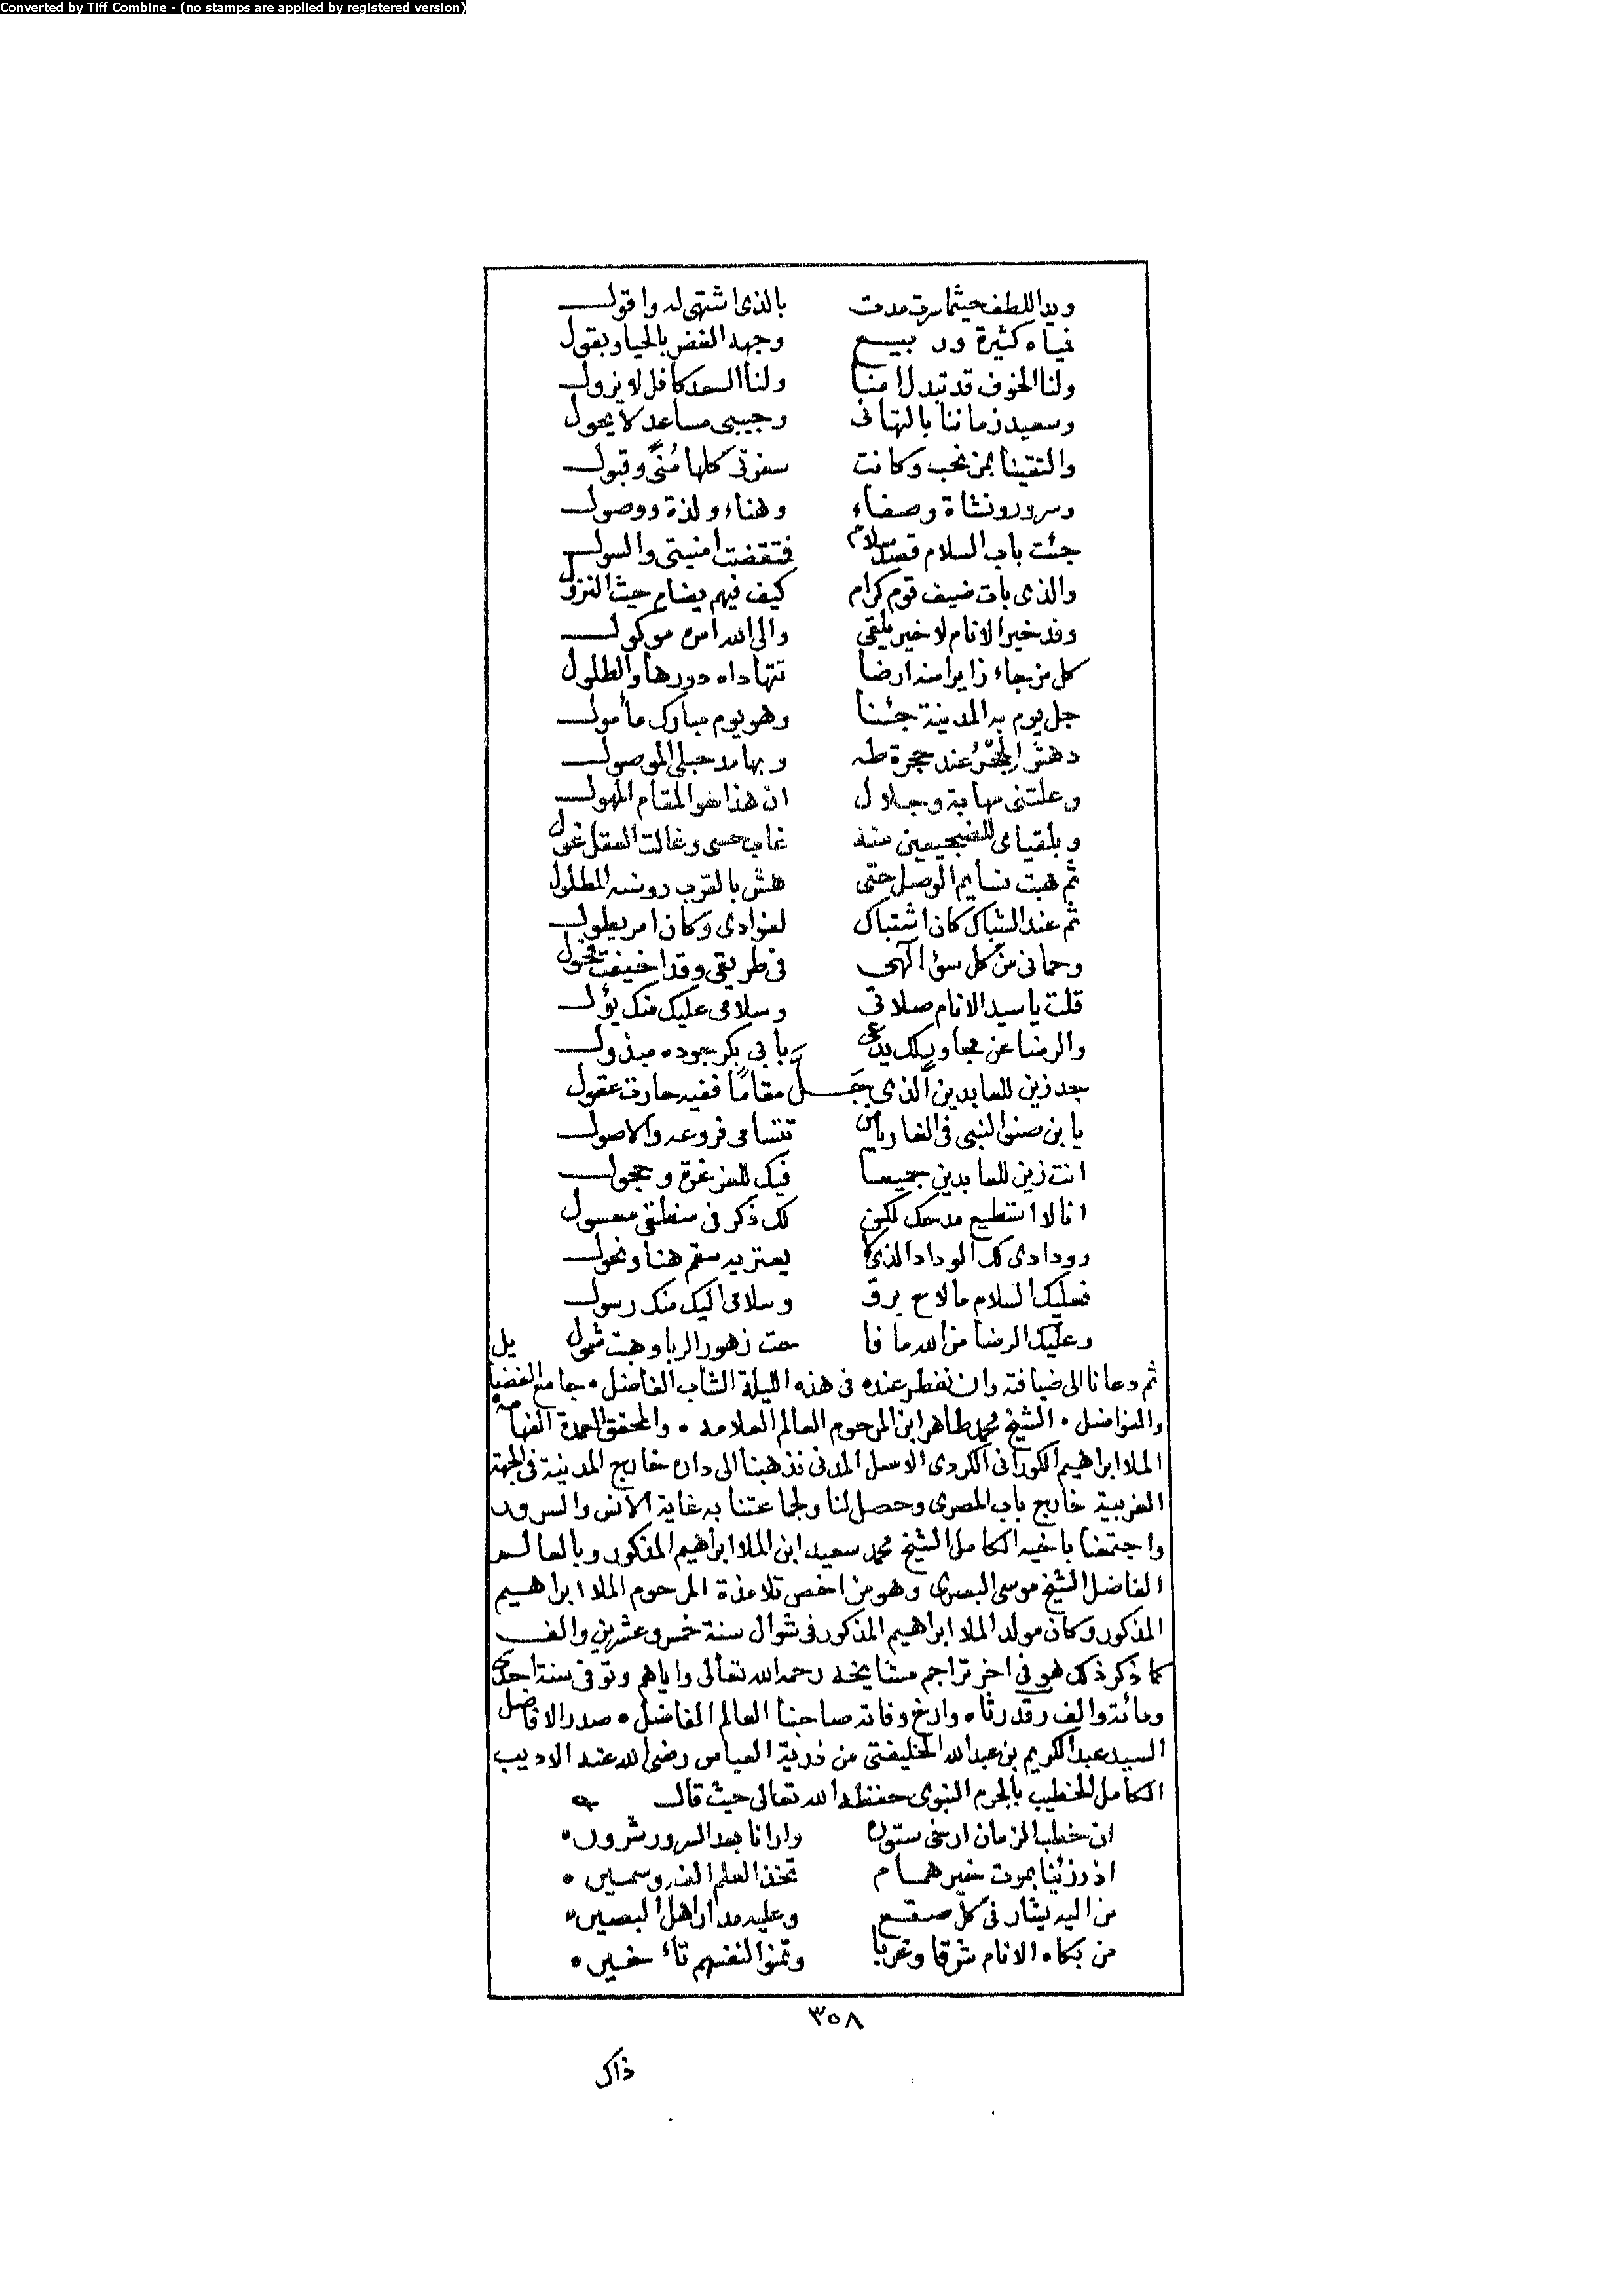 Converted by Tiff Combine - (no stamps are applied by registered version)
ويد اللطف حيثما سرت مدت بالذى اشتهى له واقول
فمياه كثيرة وربيع وجهه الغض بالحيا وبقول
ولنا الخوف قد تبدل امنا ولنا السعد كافل لا يزول
وسعيد زماننا بالتهانى وحبيبى مساعد لا يحول
والتقينا بمن نحب وكانت سفرتى كلها مُنىً وقبول
وسرور ونشاة وصفاء وهناء ولذة ووصول
جئت باب السلام سلام فتقضت امنيتى والسول
والذى بات ضيف قوم كرام كيف فيهم يضام حيث النزول
وفد خير الانام لا خير يلقى والى الله امره موكول
كل من جاء زايرا منه ارضا تتهاداه دورها والطلول
جل يوم به المدينة جئنا وهو يوم مبارك مأمول
دهش عند حجرة طه وبها مد حبلى الموصول
وعلتنى مهابة وجلال ان هذا لهو المقام المهول
وبلقياى للضجيعين منه غاب حسى وغالت العقل غول
ثم هبت نسايم الوصل حتى هش بالقرب روضه المطلول
ثم عند الشباك كان اشتباك لفوادى وكان امر يطول
وحمانى من كل سؤ الهى فى طريقى وقد اخيفت فحول
قلت يا سيد الانام صلاتى وسلامى عليك منك يؤل
والرضا عن مجاور لك يدعى بابى بكر جوده مبذول
جد زين للعابدين الذى جَلَّ مقامًا ففيه حارت عقول
يا بن صنو النبى فى الغار يا من تتسامى فروعه والاصول
انت زين للعابدين جميعا فيك للعز غرة وحجول
انا لا استطيع مدحك لكن لك ذكر فى منطقى معسول
وودادى لك الوداد الذى لا يعتريه سقم هنا ونحول
فعليك السلام ما لاح برق وسلامى اليك منك رسول
وعليك الرضا من الله ما فا حت زهور الربا وهبت شمول
ثم دعانا الى ضيافته وان نفطر عنده فى هذه الليلة الشاب الفاضل • جامع الفضايل
والفواضل • الشيخ محمد طاهر ابن المرحوم العالم العلامه • والمحقق العمدة الفهامه
الملا ابراهيم الكورانى الكردى الاصل المدنى فذهبنا الى داره خارج المدينة فى الجهة
الغربية خارج باب المصرى وحصل لنا ولجماعتنا به غاية الانس والسرور
واجتمعنا باخيه الكامل الشيخ محمد سعيد ابن الملا ابراهيم المذكور وبالعالم
الفاضل الشيخ موسى البصرى وهو من اخص تلامذة المرحوم الملا ابراهيم
المذكور وكان مولد الملا ابراهيم المذكور فى شوال سنة خمس وعشرين والف
كما ذكر ذلك هو فى اخر تراجم مشايخه رحمه الله تعالى واياهم وتوفى سنة احدى
ومائة والف وقد رثاه وارخ وفاته صاحبنا العالم الفاضل • صدر الافاضل
السيد عبد الكريم بن عبد الله الخليفتى من ذرية العباس رضى الله عنه الاديب
الكامل الخطيب بالحرم النبوى حفظه الله تعالى حيث قال
ان خطب الزمان ارخى ستوره وارانا بعد السرور شروره
اذ رزئنا بموت خير همام تخذ العلم الفه وسميره
من اليه يشار فى كل صقع وعليه مدار اهل البصيره
من بكاه الانام شرقا وغربا
٣٥٨
ذاك